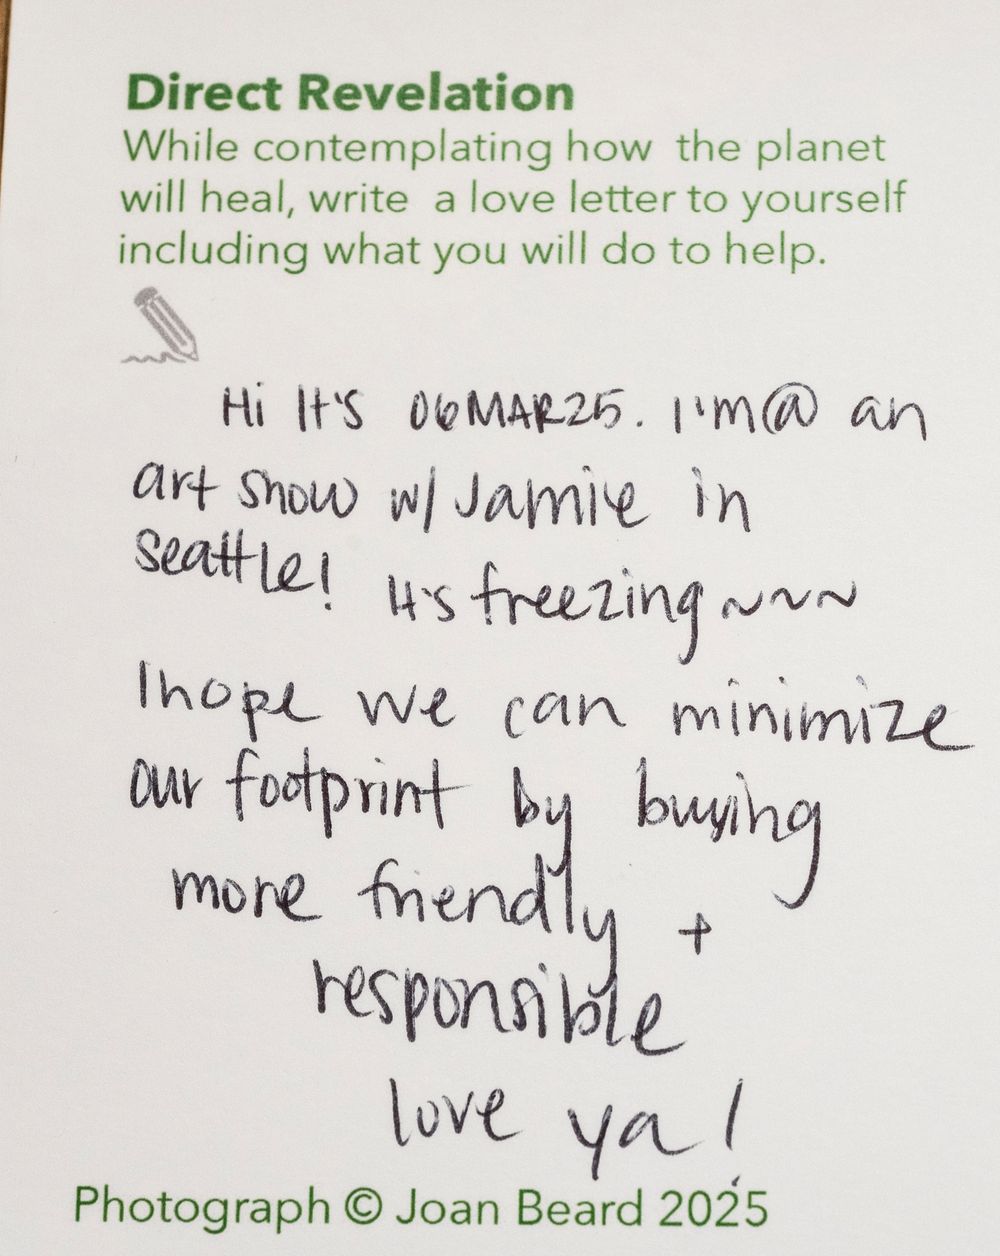 Direct Revelation
While contemplating how the planet
will heal, write a love letter to yourself
including what you will do to help.
Hi It's 06MAR25. I'm@ an
art show w/ Jamie in
Seattle! It's freezing ~~~
I hope we can minimize
our footprint by buying
more friendly +
responsible
love ya!
Photograph © Joan Beard 2025